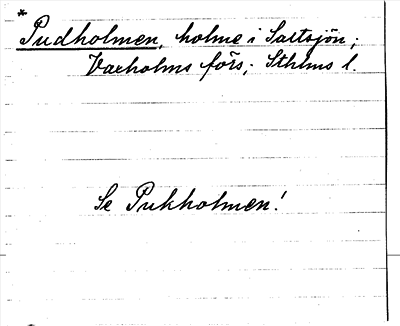 * Pudholmen, holme i Saltsjön;
Vaxholms förs; Sthlms l.
Se Pukholmen!